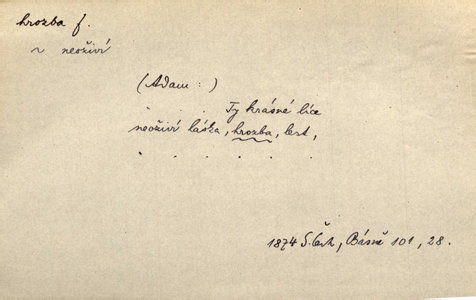 hrozba f.
~ neoživí
(Adam:)
. . . Ty krásné líce
neoživí láska, hrozba, lest,
. . . . . .
1874 S. Čech, Básně 101, 28.